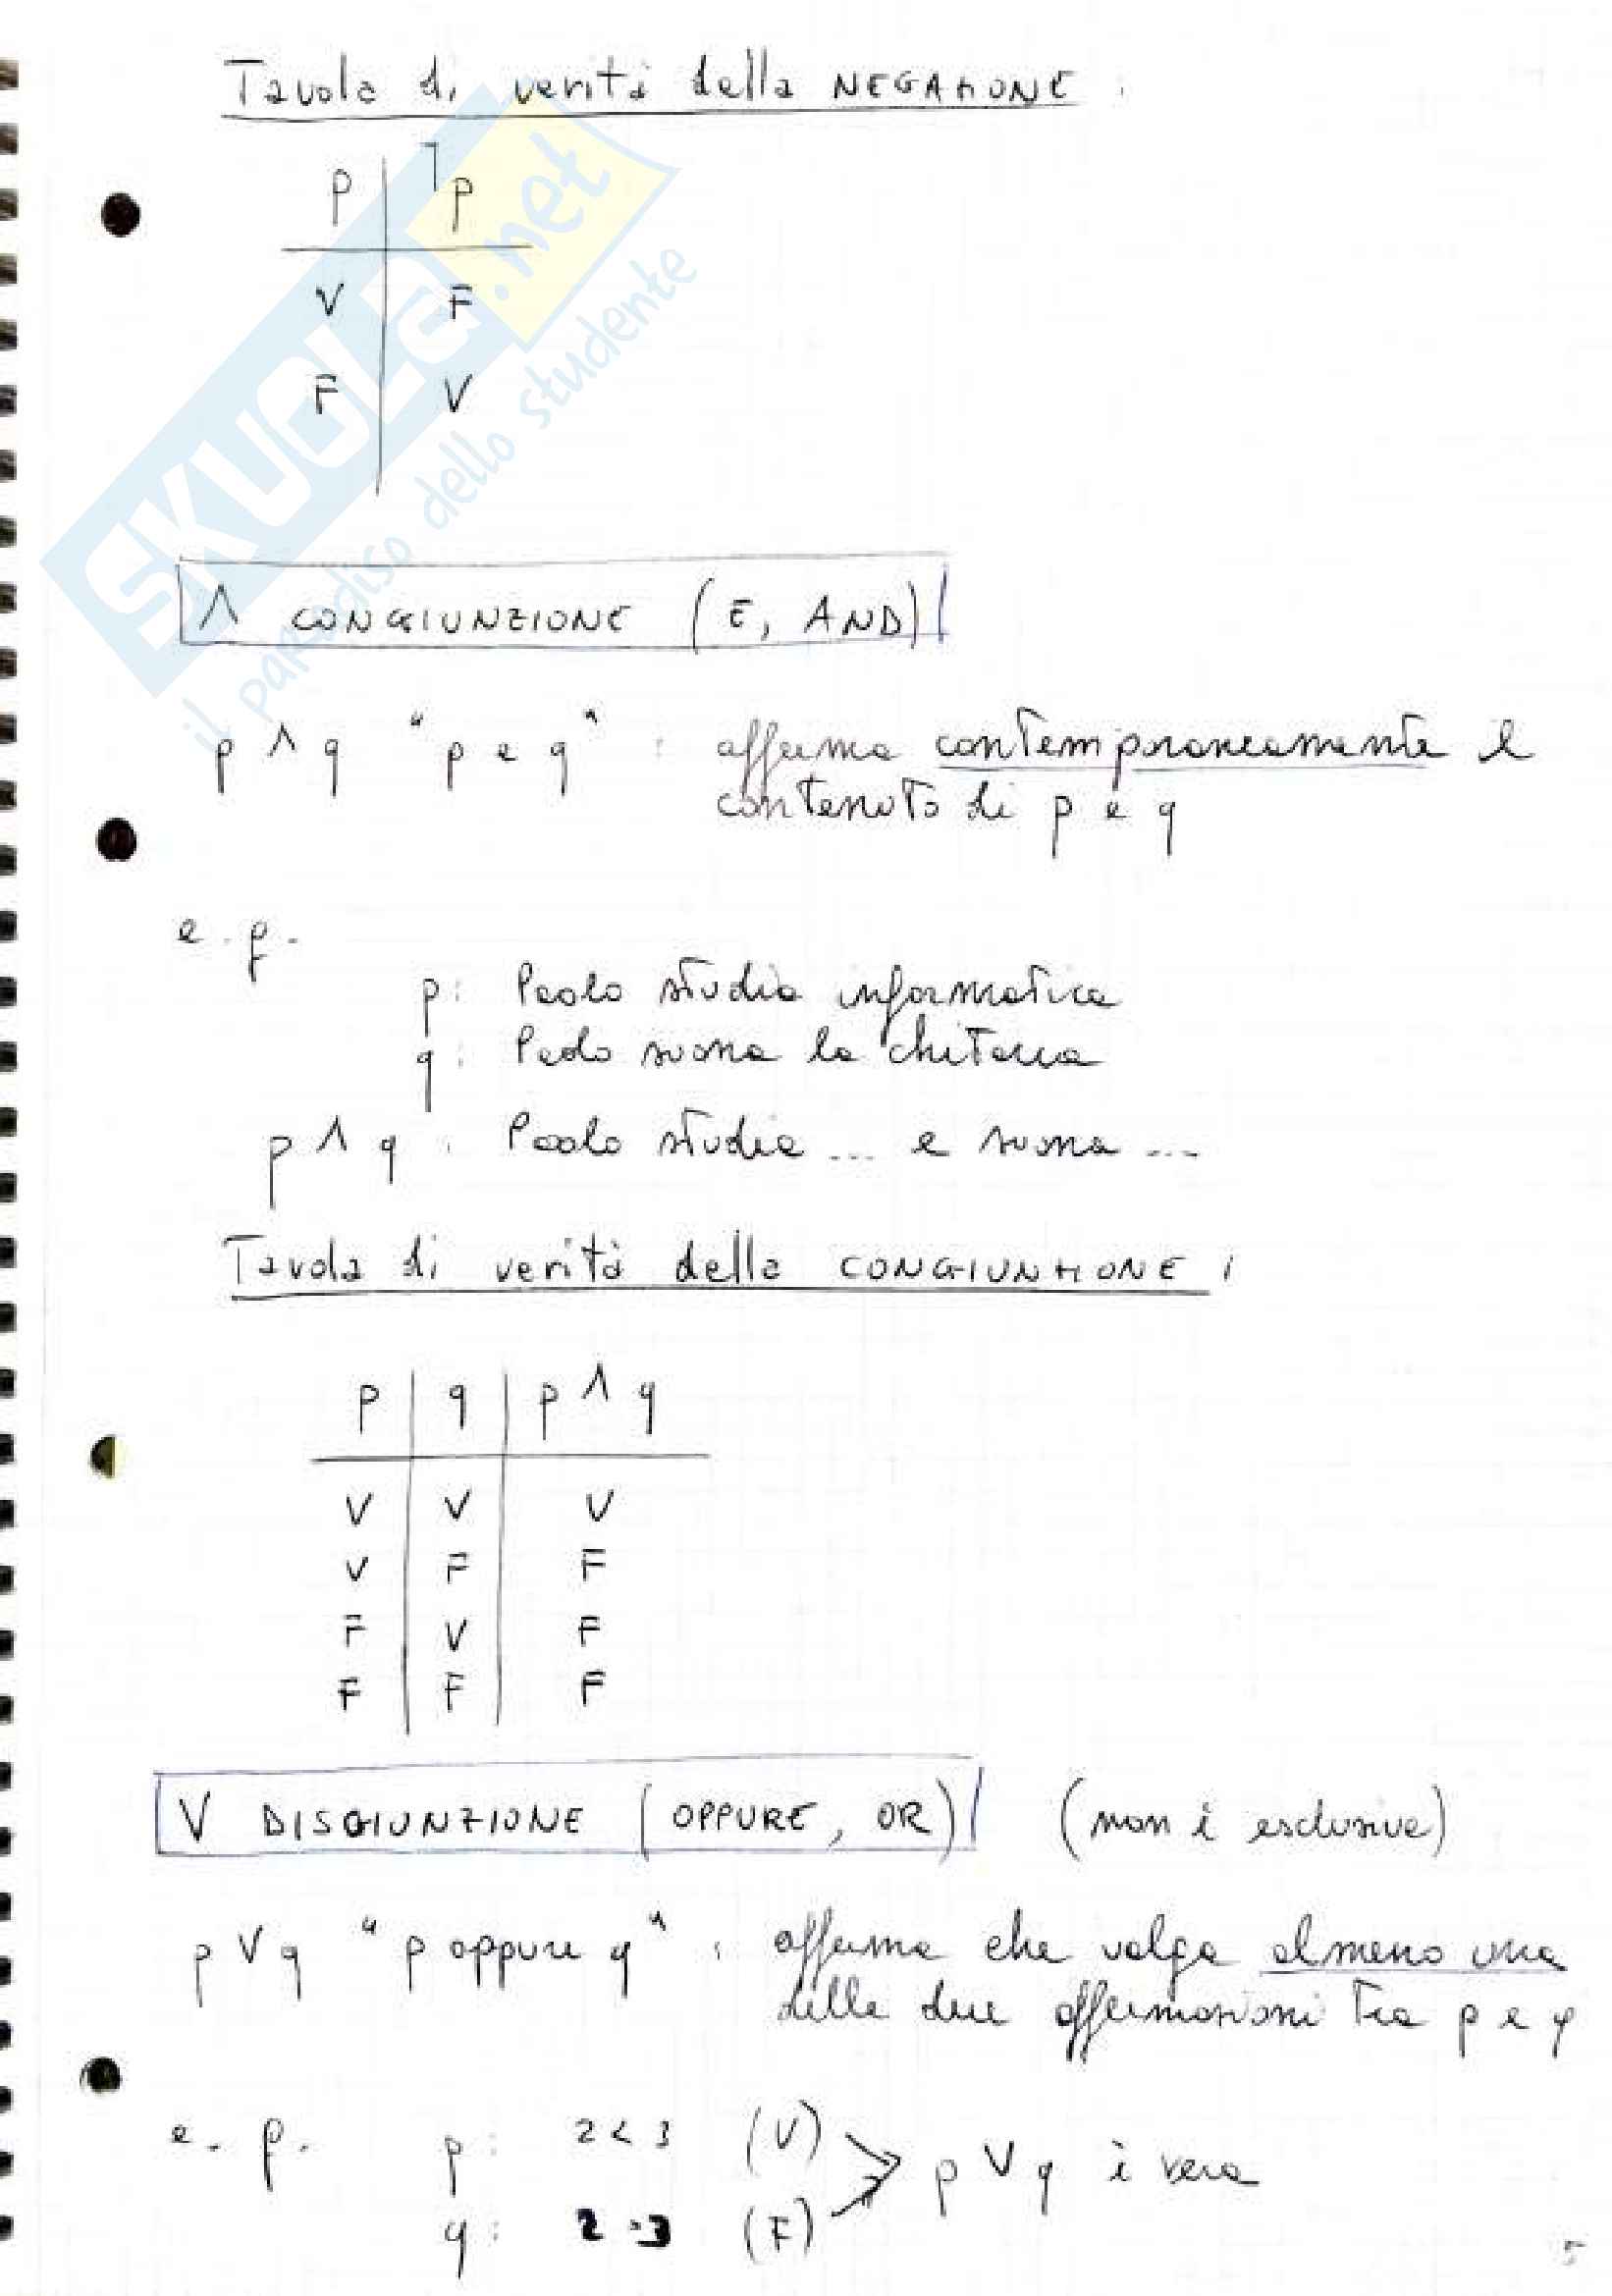 Tavola di verità della NEGAZIONE :
p | ¬p
V | F
F | V
SKUOLA.net
il paradiso dello studente
Λ CONGIUNZIONE (E, AND)
p Λ q "p e q" : afferma contemporaneamente il
contenuto di p e q
e.g.
p: Paolo studia informatica
q: Paolo suona la chitarra
p Λ q : Paolo studia ... e suona ...
Tavola di verità della CONGIUNZIONE :
p | q | p Λ q
V | V | V
V | F | F
F | V | F
F | F | F
V DISGIUNZIONE (OPPURE, OR) (non è esclusiva)
p V q "p oppure q" : afferma che valga almeno una
delle due affermazioni tra p e q
e.g. p: 2 < 3 (V)
p V q è vera
q: 2 > 3 (F)
5